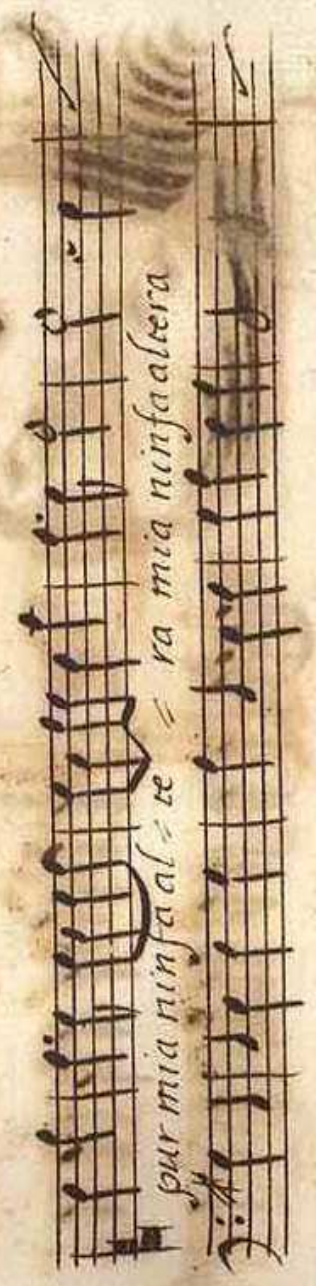 pur mia ninfa al = te = ra mia ninfa altera